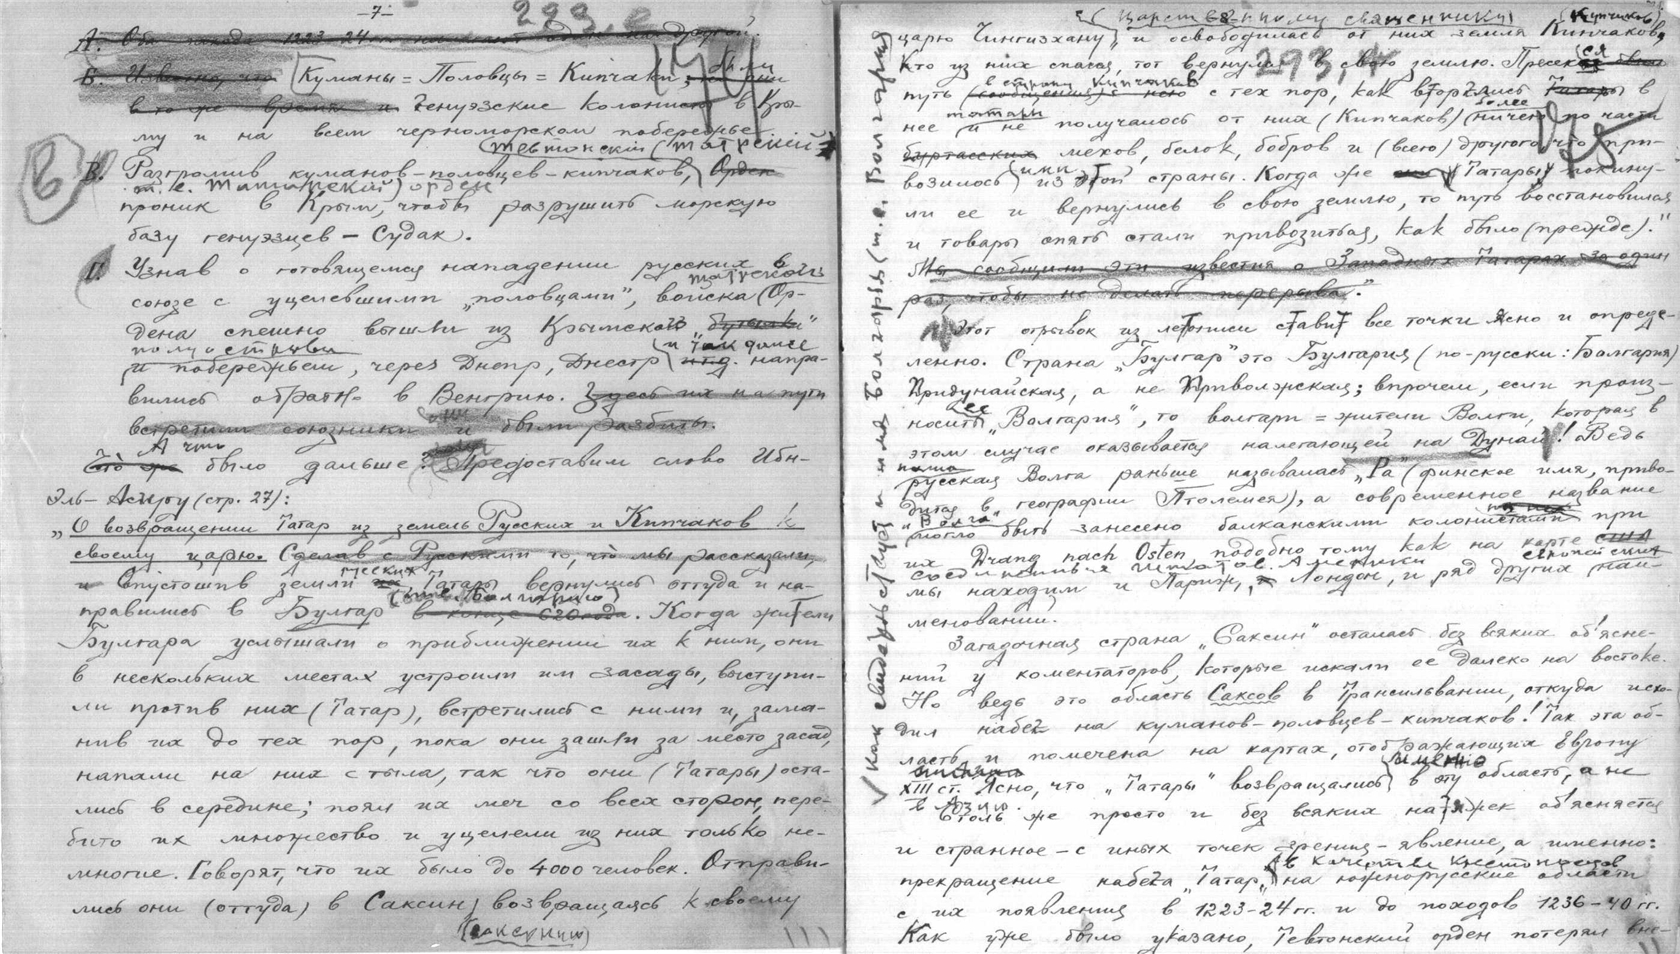 -7-
А. Оба похода 1223-24 гг.
Б. Известно, что Куманы = Половцы = Кипчаки, были
в то же время и Генуэзские колонисты в Кры-
му и на всем черноморском побережье.
(тевтонский (татрский
В. Разгромив куманов-половцев-кипчаков, Орден
т. е. Татарский) орден
проник в Крым, чтобы разрушить морскую
базу генуэзцев – Судак.
Узнав о готовящемся нападении русских в
татрского
союзе с уцелевшими „половцами", войска Ор-
дена спешно вышли из Крымского „бутылки"
полуострова и так далее
и побережьем, через Днепр, Днестр и т.д. напра-
вились обратно в Венгрию. Здесь их на пути
встретили союзники и были разбиты.
А что
Что же было дальше? Предоставим слово Ибн-
Эль-Асиру (стр. 27):
„О возвращении Татар из земель Русских и Кипчаков к
своему царю. Сделав с Русскими то, что мы рассказали,
русских
и опустошив земли их Татары вернулись оттуда и на-
правились в Булгар в конце 620 года. Когда жители
Булгара услышали о приближении их к ним, они
в нескольких местах устроили им засады, выступи-
ли против них (Татар), встретились с ними и, зама-
нив их до тех пор, пока они зашли за место засад,
напали на них с тыла, так что они (Татары) оста-
лись в середине; поял их меч со всех сторон, пере-
бито их множество и уцелели из них только не-
многие. Говорят, что их было до 4000 человек. Отправи-
лись они (оттуда) в Саксин, возвращаясь к своему
(саксинию)
293,
(царственному священнику) (Кипчаков)
царю Чингизхану, и освободилась от них земля Кипчаков,
кто из них спасся, тот вернулся в свою землю. Пресекся
в страну Кипчаков
путь (сообщения) с нею с тех пор, как вторглись Татары в
татары более
нее и не получалось от них (Кипчаков) ничего по части
буртасских мехов, белок, бобров и (всего) другого, что при-
возилось из этой страны. Когда же они (Татары) покину-
ли ее и вернулись в свою землю, то путь восстановился
и товары опять стали привозиться, как было (прежде)."
Мы сообщили эти известия о Западных Татарах за один
раз, чтобы не делать перерыва."
Этот отрывок из летописи ставит все точки ясно и опреде-
ленно. Страна „Булгар" это Булгария (по-русски: Болгария)
Придунайская, а не Приволжская; впрочем, если произ-
ее
носить „Волгария", то волгары = жители Волги, которая в
этом случае оказывается налегающей на Дунай! Ведь
наша
русская Волга раньше называлась „Ра" (финское имя, приво-
дится в географии Птолемея), а современное название
„Волга"
могло быть занесено балканскими колонистами при
их Drang nach Osten, подобно тому как на карте США
Соединенных Штатов Америки европейских
мы находим и Париж, и Лондон, и ряд других наи-
менований.
Загадочная страна „Саксин" осталась без всяких об'ясне-
ний у коментаторов, которые искали ее далеко на востоке.
Но ведь это область Саксов в Трансильвании, откуда исхо-
дил набег на куманов-половцев-кипчаков! Так эта об-
ласть и помечена на картах, отображающих Европу
именно
XIII ст. Ясно, что „Татары" возвращались в эту область, а не
в Азию.
Столь же просто и без всяких натяжек об'ясняется
и странное – с иных точек зрения – явление, а именно:
в качестве крестоносцев
прекращение набега „Татар" на южнорусские области
с их появления в 1223-24 гг. и до походов 1236-40 гг.
Как уже было указано, Тевтонский орден потерял вне-